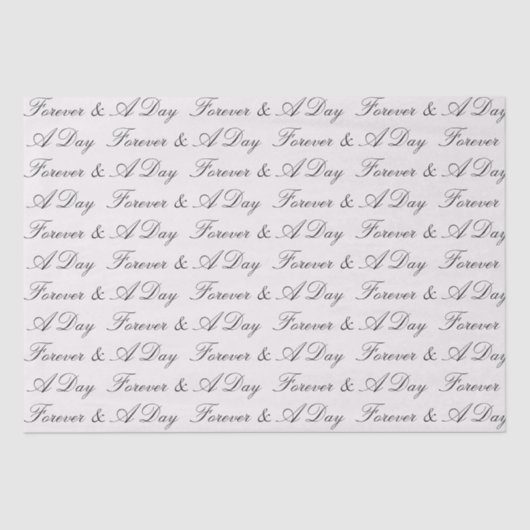 Forever & A Day Forever & A Day Forever & A Day
A Day Forever & A Day Forever & A Day Forever
Forever & A Day Forever & A Day Forever & A Day
A Day Forever & A Day Forever & A Day Forever
Forever & A Day Forever & A Day Forever & A Day
A Day Forever & A Day Forever & A Day Forever
Forever & A Day Forever & A Day Forever & A Day
A Day Forever & A Day Forever & A Day Forever
Forever & A Day Forever & A Day Forever & A Day
A Day Forever & A Day Forever & A Day Forever
Forever & A Day Forever & A Day Forever & A Day